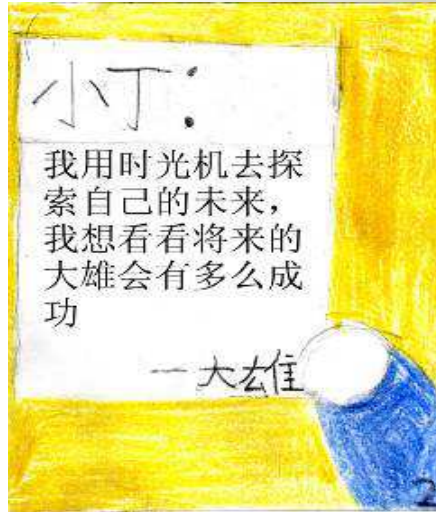 小丁：
我用时光机去探
索自己的未来，
我想看看将来的
大雄会有多么成
功
一大雄
2